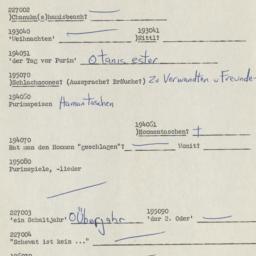 227002
)Chanuke(n)hanisbeach?
193040 193041
'Weihnachten' )Nittl?
194051
'der Tag vor Purim' Otanis ester
195070
)Schlachmones? (Aussprache? Bräuche?) Zu Verwandten u Freunde
194060
Purimspeisen Hamantaschen
194061
)Homentaschen? +
194070
Hat man den Homen "geschlagen"? Womit?
195080
Purimspiele, -lieder
227003 195090
'ein Schaltjahr' Überjahr 'der 2. Oder'
227004
"Schevat ist kein ..."